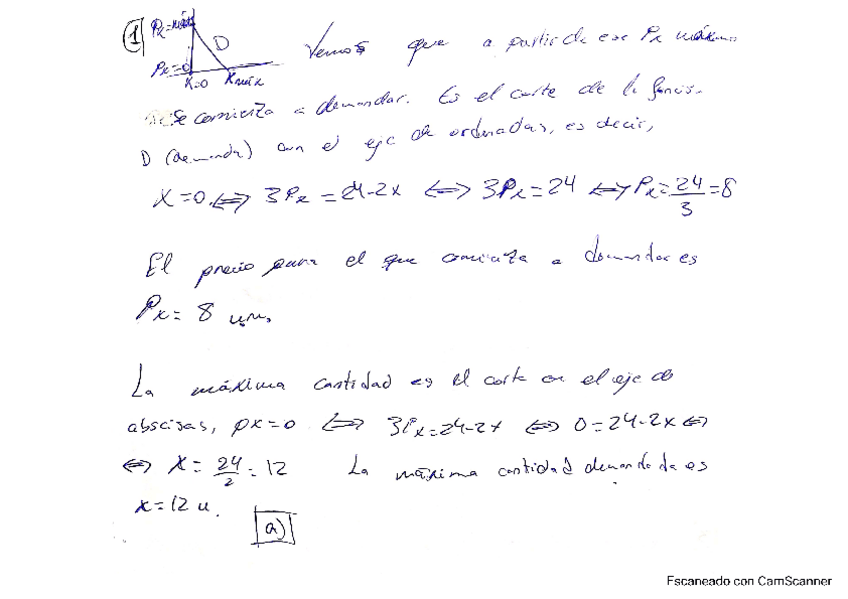 1 Px=máx
D
Px=0
x=0 xmáx
Vemos que a partir de ese Px máximo
se comienza a demandar. Es el corte de la función
D (demanda) con el eje de ordenadas, es decir,
X=0. ⟺ 3Px = 24-2x ⟺ 3Px=24 ⟺ Px=24/3=8
El precio para el que comienza a demandar es
Px= 8 u.m.
La máxima cantidad es el corte en el eje de
abscisas, px=0 ⟺ 3Px=24-2x ⟺ 0=24-2x ⟺
⟺ x= 24/2 = 12 La máxima cantidad demandada es
x=12 u.
a)
Escaneado con CamScanner